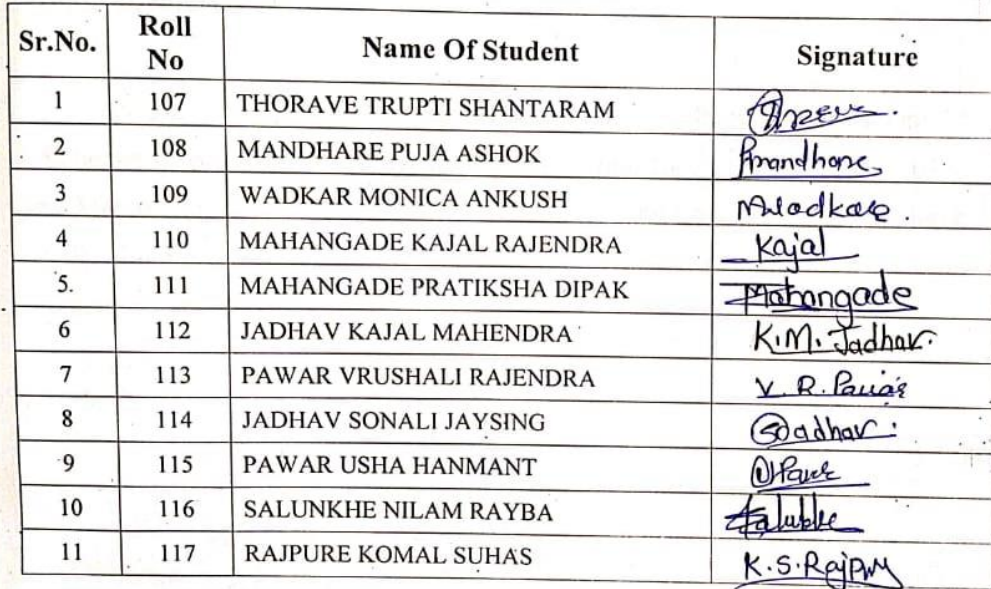 Sr.No. Roll No Name Of Student Signature
1 107 THORAVE TRUPTI SHANTARAM
2 108 MANDHARE PUJA ASHOK Pmandhare
3 109 WADKAR MONICA ANKUSH
4 110 MAHANGADE KAJAL RAJENDRA Kajal
5. 111 MAHANGADE PRATIKSHA DIPAK Mahangade
6 112 JADHAV KAJAL MAHENDRA K.M. Jadhav.
7 113 PAWAR VRUSHALI RAJENDRA V. R. Pawar
8 114 JADHAV SONALI JAYSING
9 115 PAWAR USHA HANMANT
10 116 SALUNKHE NILAM RAYBA
11 117 RAJPURE KOMAL SUHAS